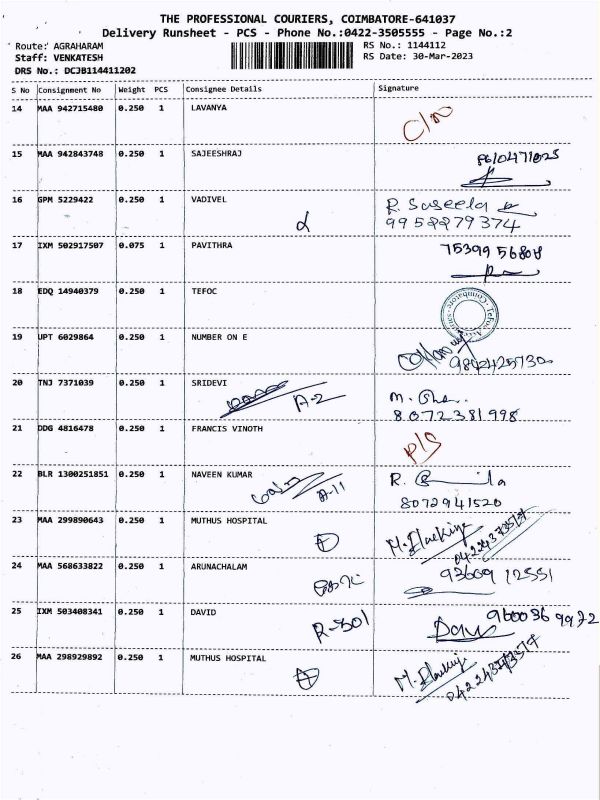 THE PROFESSIONAL COURIERS, COIMBATORE-641037
Delivery Runsheet - PCS - Phone No.:0422-3505555 - Page No.:2
Route: AGRAHARAM
RS No.: 1144112
Staff: VENKATESH
RS Date: 30-Mar-2023
DRS No.: DCJB114411202
S No Consignment No Weight PCS Consignee Details Signature
14 MAA 942715480 0.250 1 LAVANYA
15 MAA 942843748 0.250 1 SAJEESHRAJ
8610471025
16 GPM 5229422 0.250 1 VADIVEL R. Suseela
9952279374
17 IXM 502917507 0.075 1 PAVITHRA 75399 56808
18 EDQ 14940379 0.250 1 TEFOC
19 UPT 6029864 0.250 1 NUMBER ON E
20 TNJ 7371039 0.250 1 SRIDEVI
A-2 M.
8072381998
21 DDG 4816478 0.250 1 FRANCIS VINOTH
P/S
22 BLR 1300251851 0.250 1 NAVEEN KUMAR R.
A-11 8072941520
23 MAA 299890643 0.250 1 MUTHUS HOSPITAL
24 MAA 568633822 0.250 1 ARUNACHALAM
93609 12551
25 IXM 503408341 0.250 1 DAVID
R-301 960036 9972
26 MAA 298929892 0.250 1 MUTHUS HOSPITAL